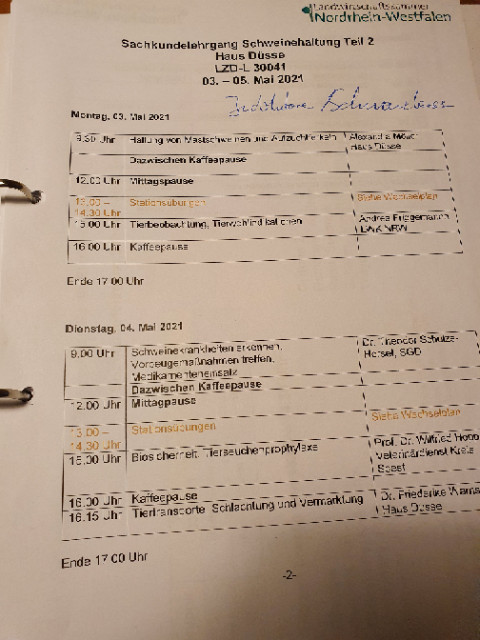 Landwirtschaftskammer
Nordrhein-Westfalen
Sachkundelehrgang Schweinehaltung Teil 2
Haus Düsse
LZD-L 30041
03. – 05. Mai 2021
Montag, 03. Mai 2021
9.30 Uhr Haltung von Mastschweinen und Aufzuchtferkeln
Haus Düsse
Dazwischen Kaffeepause
12.00 Uhr Mittagspause
13.00 – Stationsübungen Siehe Wechselplan
14.30 Uhr
15.00 Uhr Tierbeobachtung, Tierwohlindikationen Andrea
LWK NRW
16.00 Uhr Kaffeepause
Ende 17.00 Uhr
Dienstag, 04. Mai 2021
9.00 Uhr Schweinekrankheiten erkennen, Dr. Theodor Schulze-
Vorbeugemaßnahmen treffen, SGD
Medikamenteneinsatz
Dazwischen Kaffeepause
12.00 Uhr Mittagpause
13.00 – Stationsübungen Siehe Wechselplan
14.30 Uhr
15.00 Uhr Biosicherheit, Tierseuchenprophylaxe Prof. Dr. Wilfried
Veterinärdienst Kreis
Soest
16.00 Uhr Kaffeepause
16.15 Uhr Tiertransporte, Schlachtung und Vermarktung Dr. Friederike
Haus Düsse
Ende 17.00 Uhr
-2-